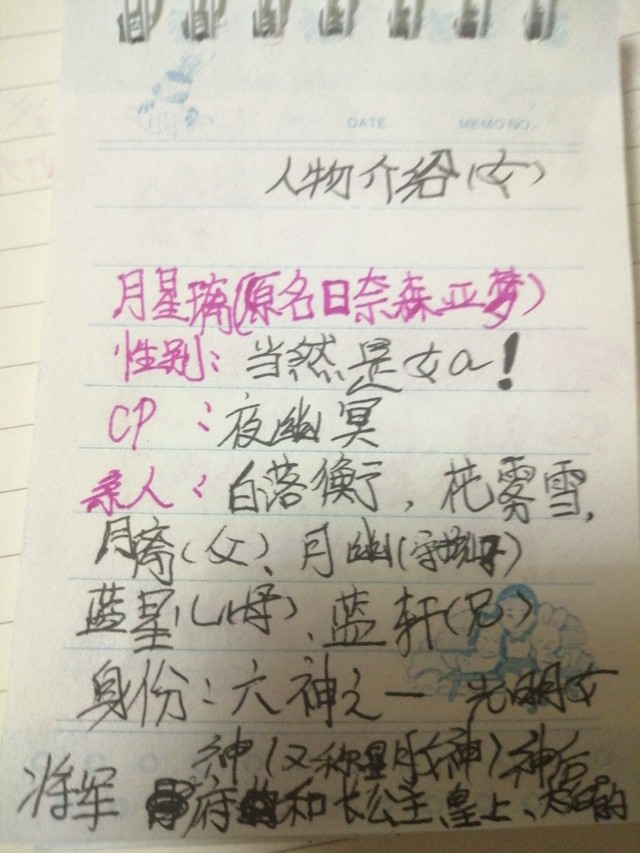 DATE MEMO NO.
人物介绍(女)
月星璃(原名日奈森亚梦)
性别:当然是女a!
CP:夜幽冥
亲人:白落衡,花雾雪,
月(父)、月幽(
蓝星(母)、蓝轩(兄)
身份:六神之一 光明女
神(又称星月女神)神后
将军府和长公主、皇上、太后的